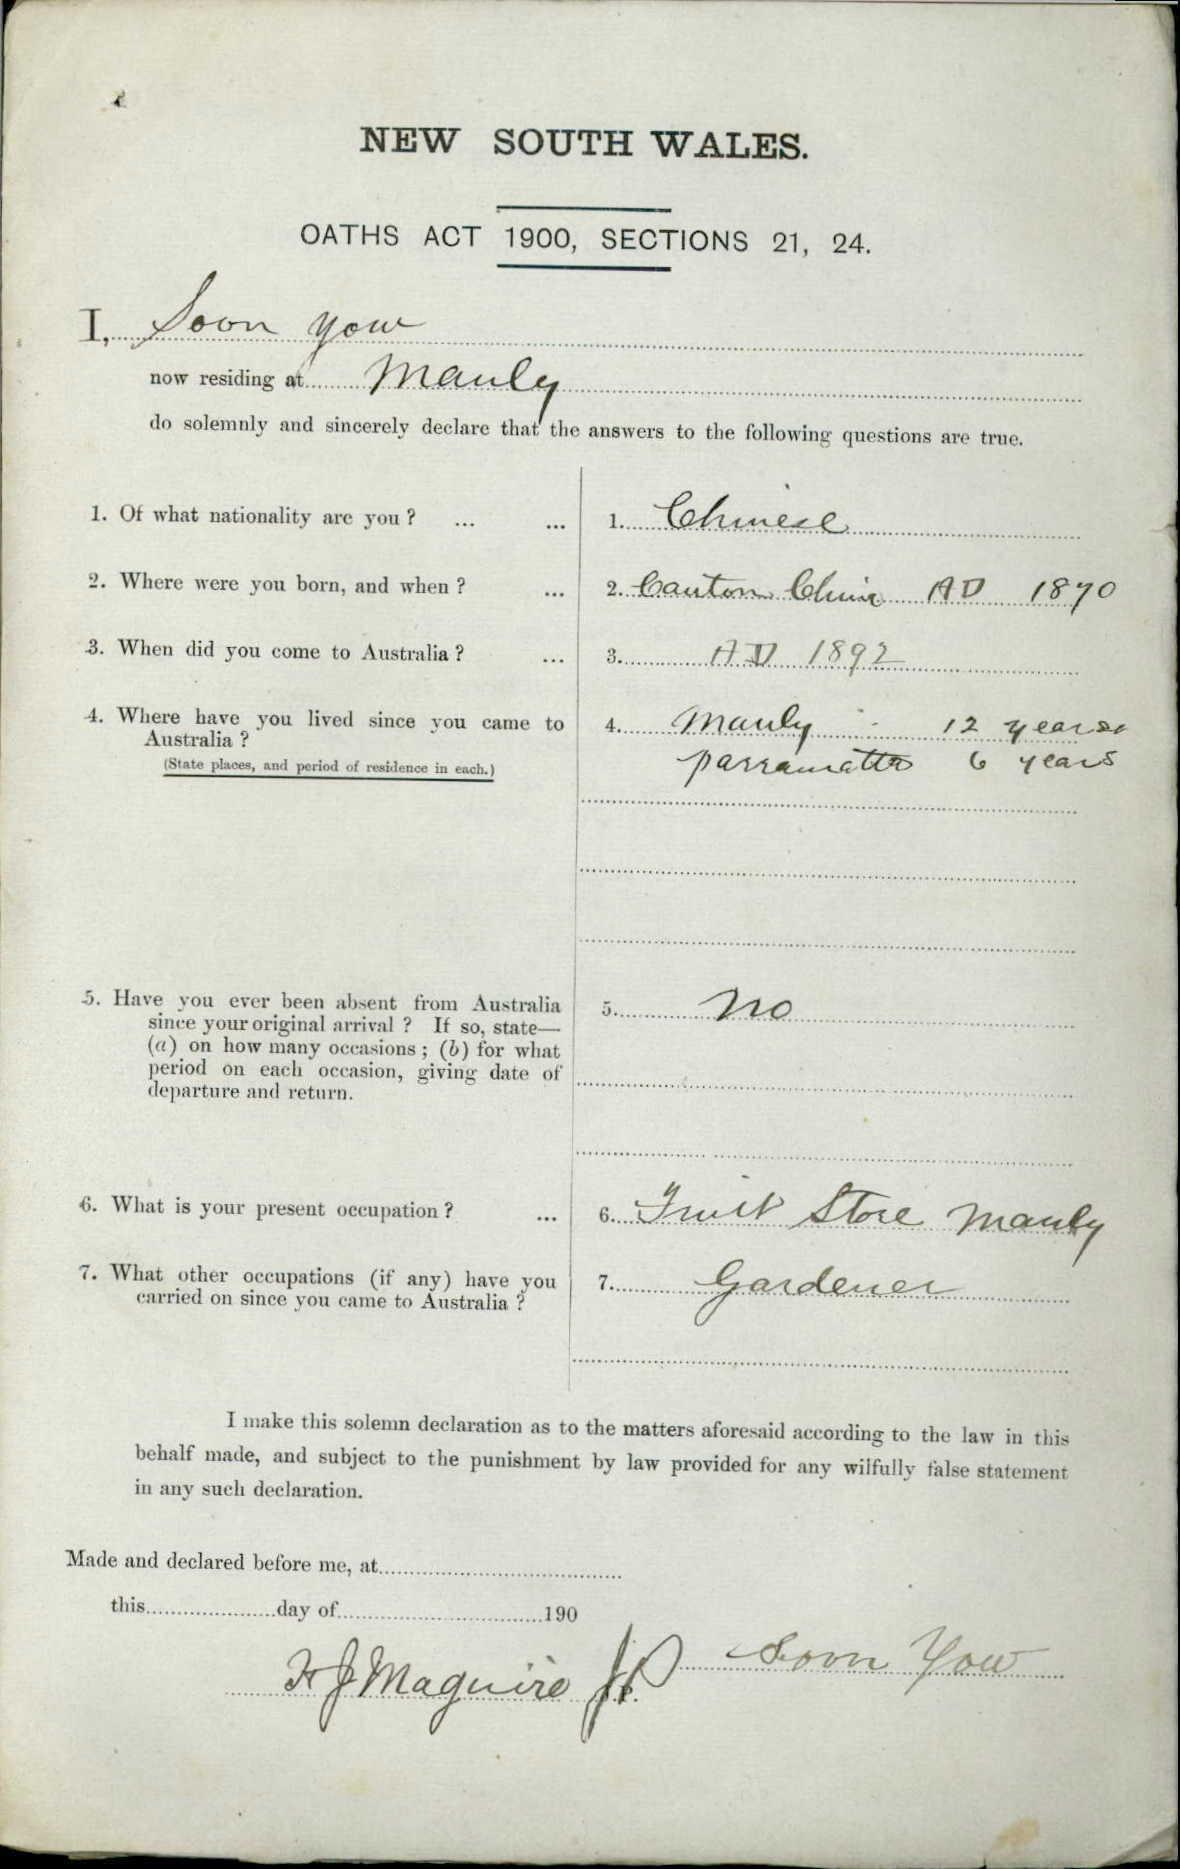 NEW SOUTH WALES.
OATHS ACT 1900, SECTIONS 21, 24.
I, Soon Yow
now residing at Manly
do solemnly and sincerely declare that the answers to the following questions are true.
1. Of what nationality are you? ... ... 1. Chinese
2. Where were you born, and when? ... 2. Canton China AD 1870
3. When did you come to Australia? ... 3. AD 1892
4. Where have you lived since you came to 4. Manly 12 years
Australia? Parramatta 6 years
(State places, and period of residence in each.)
5. Have you ever been absent from Australia 5. No
since your original arrival? If so, state—
(a) on how many occasions; (b) for what
period on each occasion, giving date of
departure and return.
6. What is your present occupation? ... 6. Fruit Store Manly
7. What other occupations (if any) have you 7. Gardener
carried on since you came to Australia?
I make this solemn declaration as to the matters aforesaid according to the law in this
behalf made, and subject to the punishment by law provided for any wilfully false statement
in any such declaration.
Made and declared before me, at
this day of 190
H J Maguire JP Soon Yow